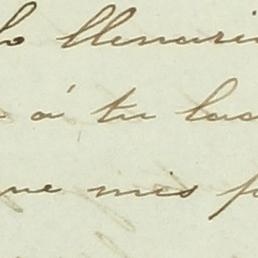 lo llenari
á tu lad
ue mis p